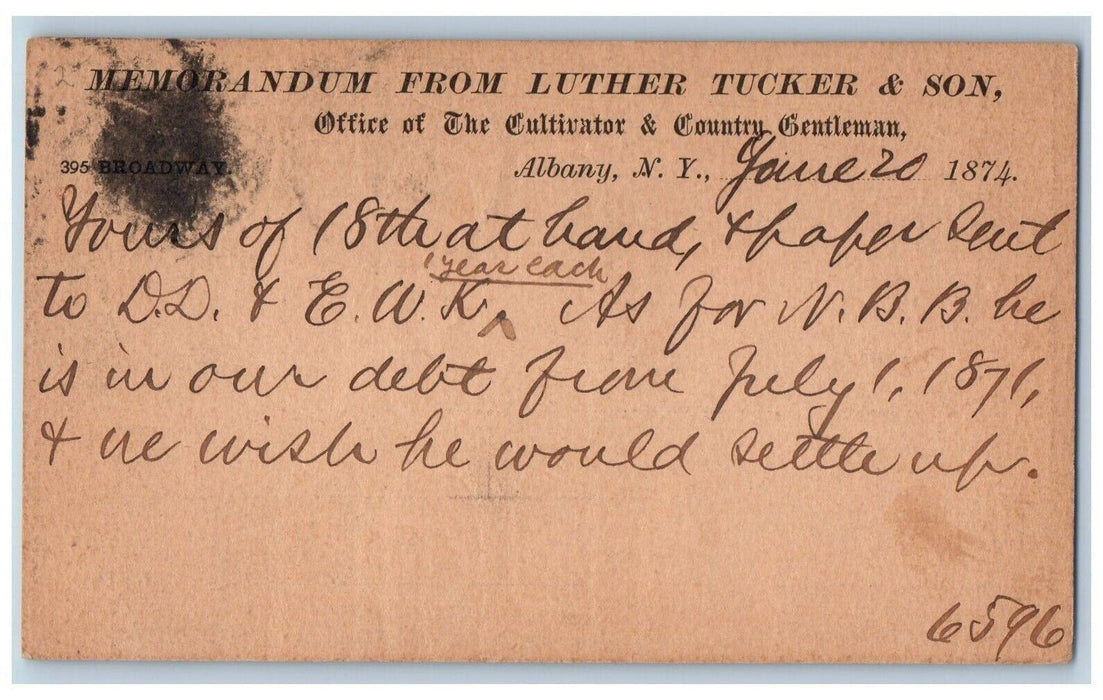 MEMORANDUM FROM LUTHER TUCKER & SON,
Office of The Cultivator & Country Gentleman,
395 BROADWAY. Albany, N. Y., June 20 1874.
Yours of 18th at hand, & paper sent
1 year each
to D.D. & E.W.K. As for N.B.B. he
is in our debt from July 1, 1871,
& we wish he would settle up.
6596